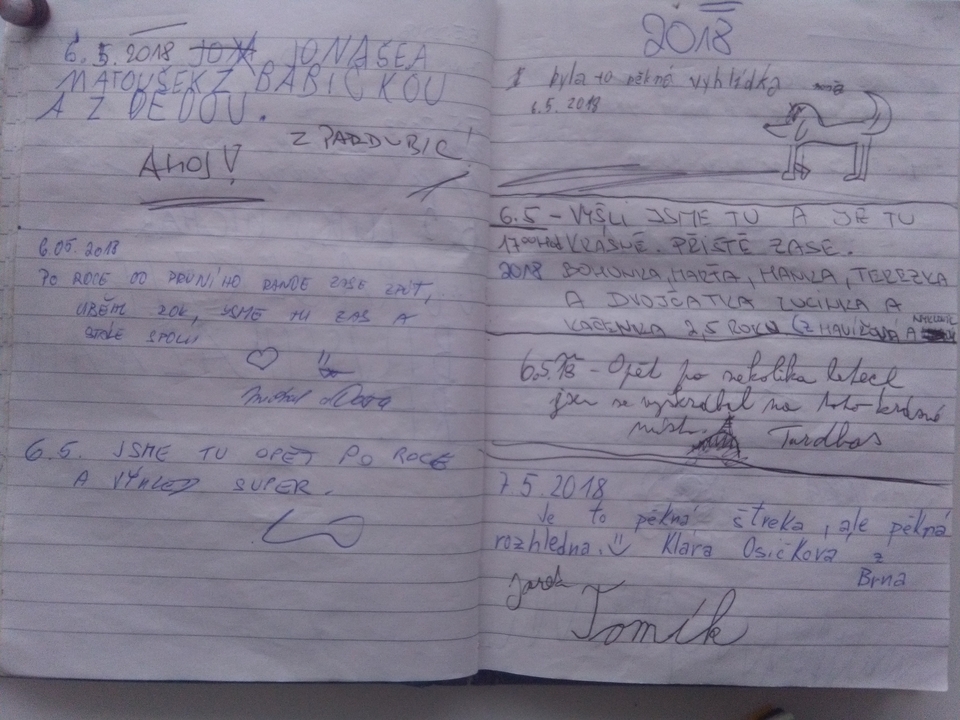 6.5.2018 JONÁŠ A
MATOUŠEK Z BABIČKOU
A Z DĚDOU.
Z PARDUBIC!
AHOJ!
6.05.2018
PO ROCE OD PRVNÍHO RANDE ZASE ZPĚT,
ROK, JSME TU ZAS A
SPOLU
6.5. JSME TU OPĚT PO ROCE
A VÝHLED SUPER.
2018
byla to pěkná vyhlídka
6.5.2018
6.5 - VYŠLI JSME TU A JE TU
17 00 HOD KRÁSNĚ. PŘÍŠTĚ ZASE.
2018 BOHUNKA, MAŘA, HANKA, TEREZKA
A DVOJČATKA LUCINKA A
KAČENKA 2,5 ROKU (Z HAVÍŘOVA A
6.5.18 - Opět po několika letech
jsem se vyškrábal na toto krásné
místo.
7.5.2018
Je to pěkná štreka, ale pěkná
rozhledna. Klára Osičkova z
Brna
Jarek
Tomík